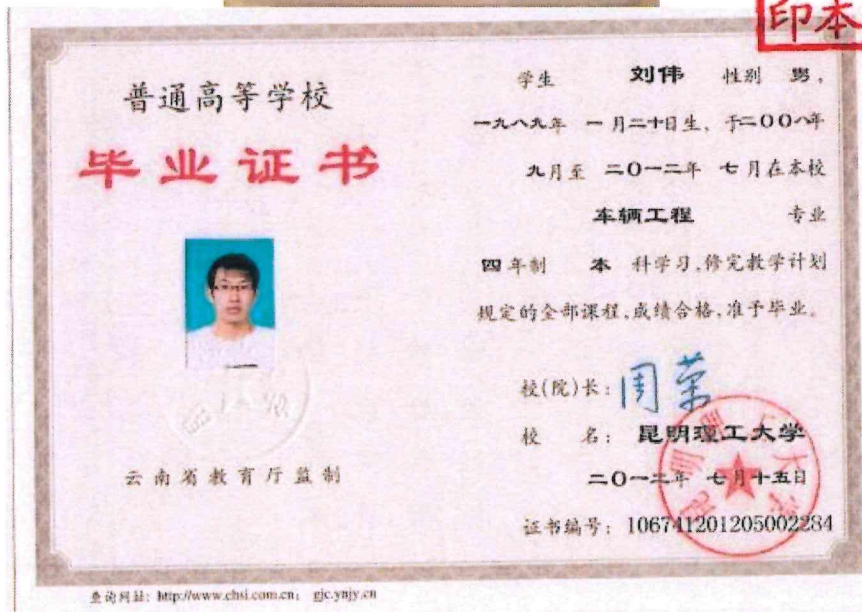 印本
普通高等学校
毕业证书
云南省教育厅监制
学生 刘伟 性别 男,
一九八九年 一月二十日生、于二00八年
九月至 二0一二年 七月在本校
车辆工程 专业
四年制 本 科学习,修完教学计划
规定的全部课程,成绩合格,准予毕业。
校(院)长: 周荣
校 名: 昆明理工大学
二0一二年 七月十五日
证书编号: 106741201205002284
查询网址: http://www.chsi.com.cn; gjc.ynjy.cn